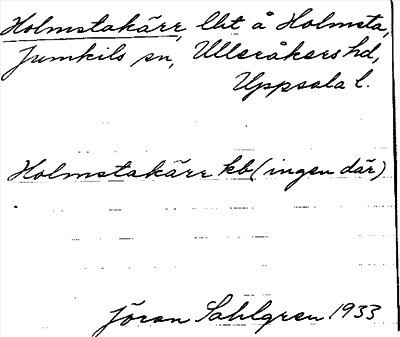 Holmstakärr, lht å Holmsta,
Jumkils sn, Ulleråkers hd,
Uppsala l.
Holmstakärr kb (ingen där)
Jöran Sahlgren 1933